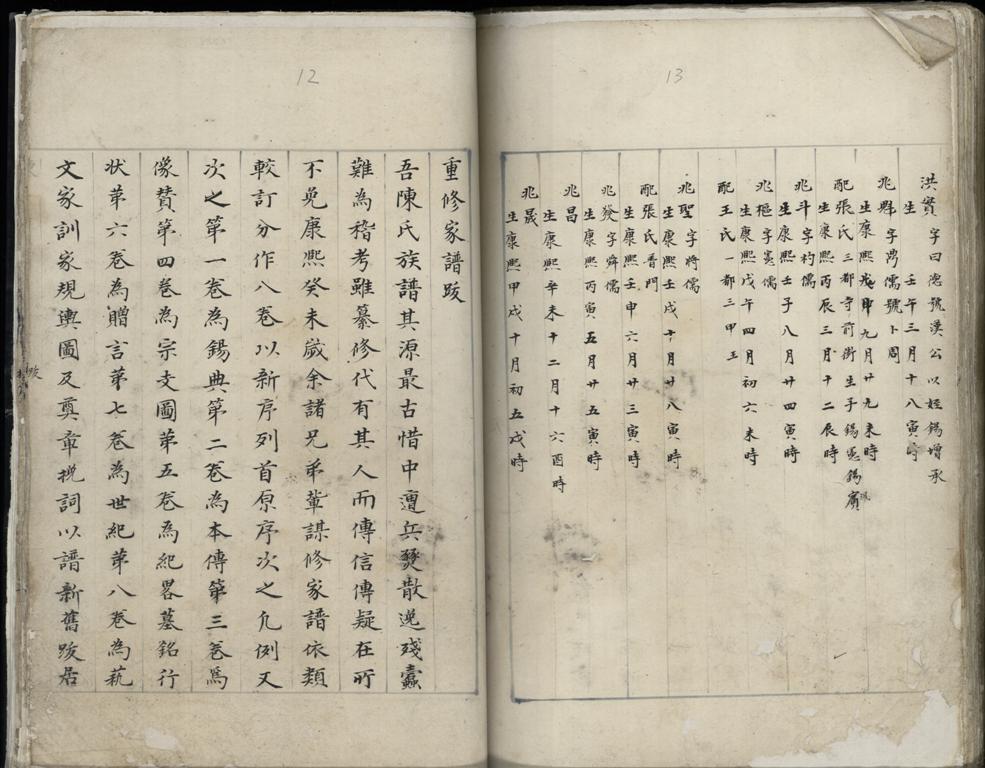 13
洪實 字曰濅號漢公以姪錫增承
生 壬午三月十八寅時
兆縣 字禺儒號卜周
生康熙 九月廿九未時
配張氏三都寺前街生子錫 錫賓
生康熙丙辰三月十二辰時
兆斗字杓儒
生康熙壬子八月廿四寅時
兆樞字 儒
生康熙戊午四月初六未時
配王氏一都三甲
兆聖字將儒
生康熙壬戌十月廿八寅時
配張氏 門
生康熙壬申六月廿三寅時
兆發字舜儒
生康熙丙寅五月廿五寅時
兆昌
生康熙辛未十二月十六酉時
兆晟
生康熙甲戌十月初五戌時
12
重修家譜跋
吾陳氏族譜其源最古惜中遭兵燹散逸殘蠹
難為稽考雖纂修代有其人而傳信傳疑在所
不免康熙癸未歲余諸兄弟輩謀修家譜依類
較訂分作八卷以新序列首原序次之凡例又
次之第一卷為錫典第二卷為本傳第三卷為
像贊第四卷為宗支圖第五卷為紀畧墓銘行
状第六卷為贈言第七卷為世紀第八卷為藝
文家訓家規輿圖及奠章挽詞以譜新舊跋居